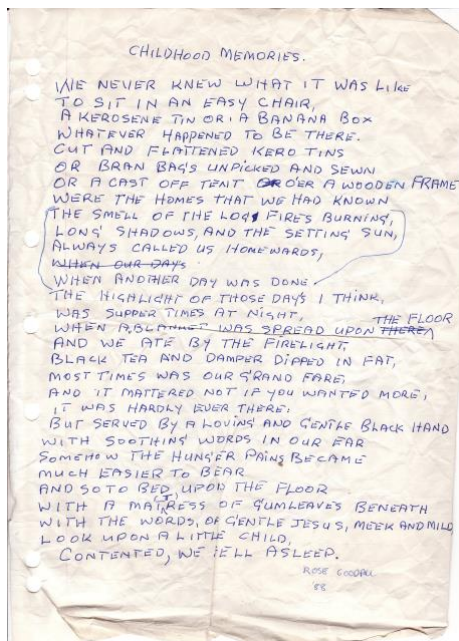 CHILDHOOD MEMORIES.
WE NEVER KNEW WHAT IT WAS LIKE
TO SIT IN AN EASY CHAIR,
A KEROSENE TIN OR A BANANA BOX
WHATEVER HAPPENED TO BE THERE.
CUT AND FLATTENED KERO TINS
OR BRAN BAG'S UNPICKED AND SEWN
OR A CAST OFF TENT O'ER A WOODEN FRAME
WERE THE HOMES THAT WE HAD KNOWN
THE SMELL OF THE LOG FIRES BURNING,
LONG SHADOWS, AND THE SETTING SUN,
ALWAYS CALLED US HOMEWARDS,
WHEN OUR DAYS
WHEN ANOTHER DAY WAS DONE.
THE HIGHLIGHT OF THOSE DAYS I THINK,
WAS SUPPER TIMES AT NIGHT,
WHEN A BLANKET WAS SPREAD UPON THERE THE FLOOR
AND WE ATE BY THE FIRELIGHT.
BLACK TEA AND DAMPER DIPPED IN FAT,
MOST TIMES WAS OUR GRAND FARE,
AND IT MATTERED NOT IF YOU WANTED MORE,
IT WAS HARDLY EVER THERE.
BUT SERVED BY A LOVING AND GENTLE BLACK HAND
WITH SOOTHING WORDS IN OUR EAR
SOMEHOW THE HUNGER PAINS BECAME
MUCH EASIER TO BEAR
AND SO TO BED, UPON THE FLOOR
WITH A MATTRESS OF GUMLEAVES BENEATH
WITH THE WORDS, OF GENTLE JESUS, MEEK AND MILD,
LOOK UPON A LITTLE CHILD,
CONTENTED, WE FELL ASLEEP.
ROSE GOODALL